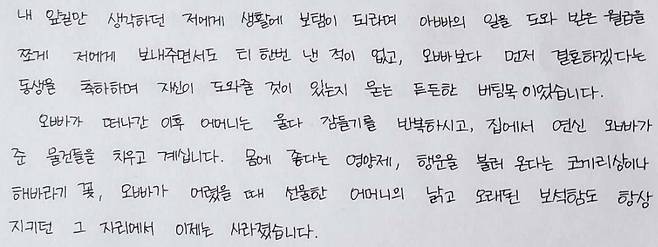 내 앞길만 생각하던 저에게 생활에 보탬이 되라며 아빠의 일을 도와 받은 월급을
쪼개 저에게 보내주면서도 티 한번 낸 적이 없고, 오빠보다 먼저 결혼하겠다는
동생을 축하하며 자신이 도와줄 것이 있는지 묻는 든든한 버팀목이었습니다.
오빠가 떠나간 이후 어머니는 울다 잠들기를 반복하시고, 집에서 연신 오빠가
준 물건들을 치우고 계십니다. 몸에 좋다는 영양제, 행운을 불러 온다는 코끼리상이나
해바라기 꽃, 오빠가 어렸을 때 선물한 어머니의 낡고 오래된 보석함도 항상
지키던 그 자리에서 이제는 사라졌습니다.